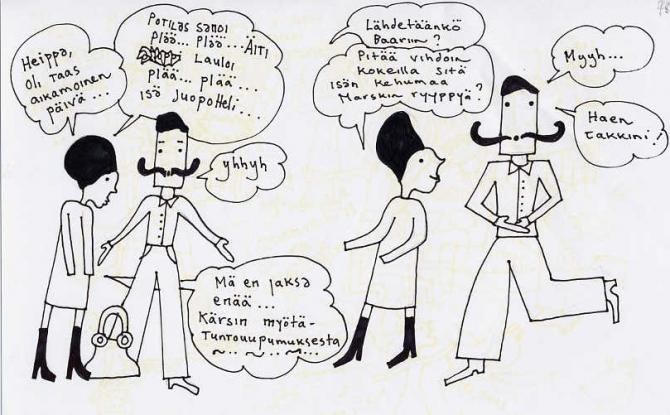 Heippa,
oli taas
aikamoinen
päivä...
Potilas sanoi
Plää... Plää... Äiti
Lauloi
Plää... plää...
Isä juopotteli...
yhhyh
Mä en jaksa
enää...
Kärsin myötä-
tuntouupumuksesta
Lähdetäänkö
Baariin?
Pitää vihdoin
kokeilla sitä
isän kehumaa
Marskin ryyppyä?
Myyh...
Haen
takkini!